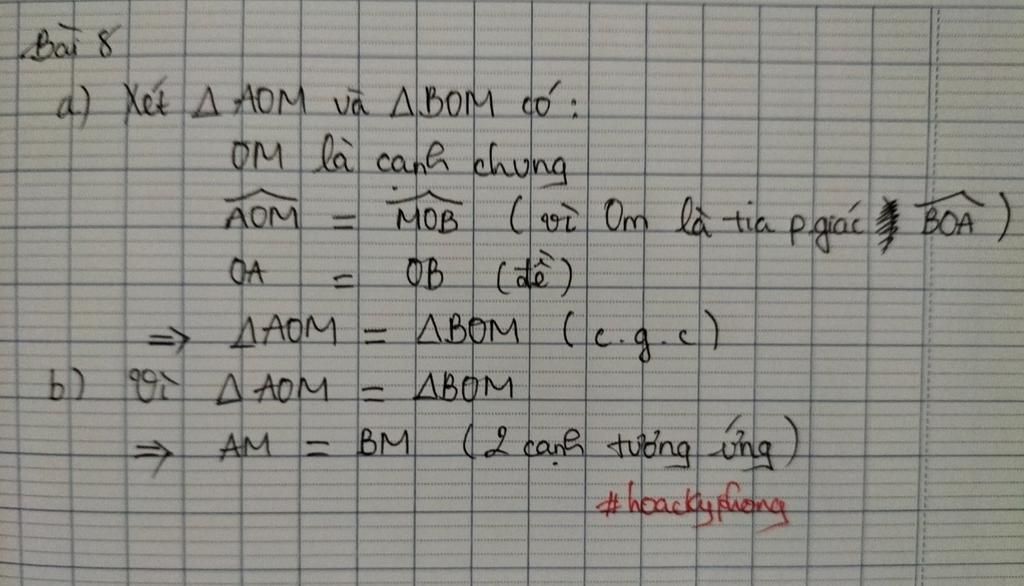 Bài 8
a) Xét Δ AOM và ΔBOM có:
OM là cạnh chung
AOM = MOB (vì Om là tia p.giác BOA)
OA = OB (đề)
=> ΔAOM = ΔBOM (c.g.c)
b) Vì Δ AOM = ΔBOM
=> AM = BM (2 cạnh tương ứng)
#hoackyphong